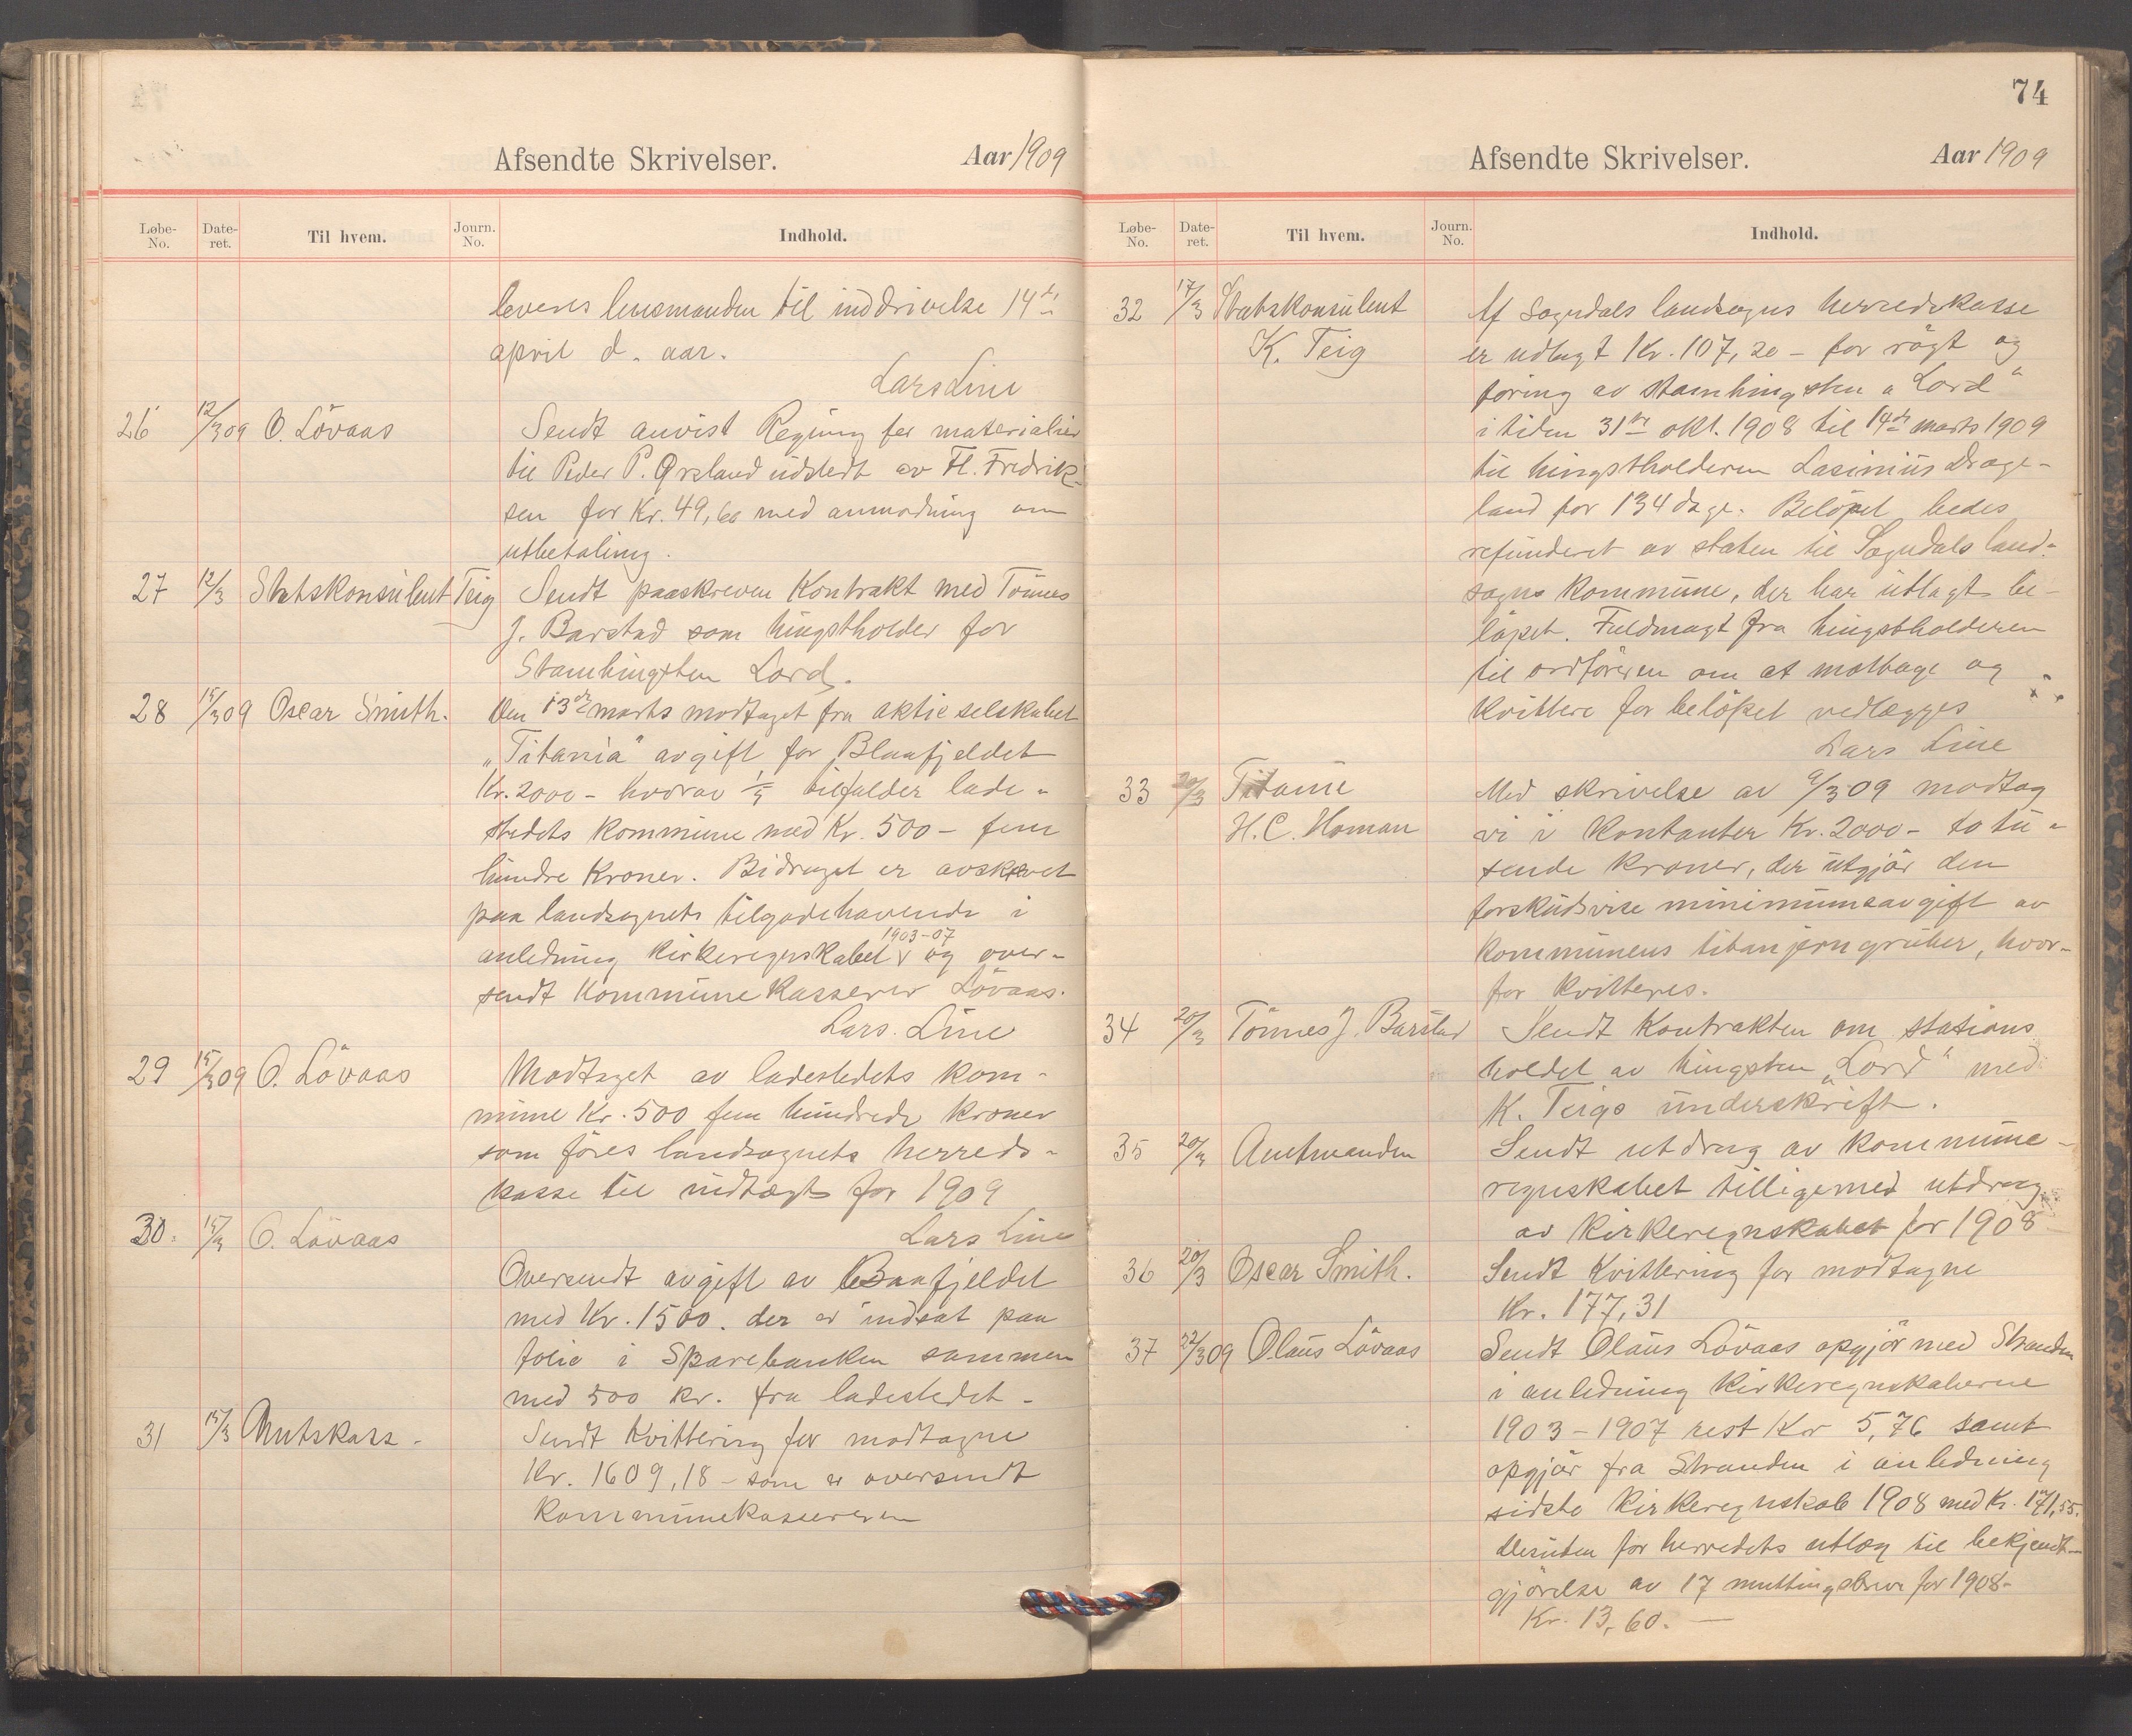 Afsendte Skrivelser. Aar 1909
Løbe-No. Date-ret. Til hvem. Journ. No. Indhold.
leveres lensmanden til inddrivelse 14de
april d. aar.
Lars Line
26 12/3 09 O. Lövaas Sendt anvist Regning for materialier
til Peder P. Ørsland udstedt av Fl. Fredrik-
sen for Kr. 49,60 med anmodning om
utbetaling.
27 12/3 Statskonsulent Teig Sendt paaskreven Kontrakt med Tönnes
J. Barstad som hingstholder for
Stamhingsten Lord.
28 15/3 09 Oscar Smith. Den 13de marts modtaget fra aktieselskabet
„Titania" avgift for Blaafjeldet
Kr. 2000 - hvorav tilfalder lade-
stedets kommune med Kr. 500 - fem
hundre Kroner. Bidraget er avskrevet
paa landsognets tilgodehavende i
anledning kirkeregnskabet 1903-07 og over-
sendt Kommunekasserer Lövaas.
Lars Line
29 15/3 09 O. Lövaas Modtaget av ladestedets kom-
mune Kr. 500 fem hundrede kroner
som föres landsognets herreds-
kasse til indtægt for 1909
Lars Line
30. 15/3 O. Lövaas
Oversendt avgift av Blaafjeldet
med Kr. 1500. der er indsat paa
folio i Sparebanken sammen
med 500 kr. fra ladestedet.
31 15/3 Amtskass. Sendt Kvittering for modtagne
Kr. 1609,18 - som er oversendt
Kommunekassereren
74
Afsendte Skrivelser. Aar 1909
Løbe-No. Date-ret. Til hvem. Journ. No. Indhold.
32 17/3 Statskonsulent Af Sogndals landsogns herredskasse
K. Teig er udlagt Kr. 107,20 - for rögt og
foring av stamhingsten „Lord"
i tiden 31te okt. 1908 til 14de marts 1909
til hingstholderen Lasinius Drage-
land for 134 dage. Belöpet bedes
refunderet av staten til Sogndals land-
sogns kommune, der har utlagt be-
löpet. Fuldmagt fra hingstholderen
til ordföreren om at motta​ge og
kvittere for belöpet vedlægges
Lars Line
33 20/3 Titania Med skrivelse av 9/3 09 modtog
H.C. Homan vi i kontanter Kr. 2000 - to tu-
sende kroner, der utgjör den
forskudsvise minimumsavgift av
kommunens titanjerngruber, hvor-
for kvitteres.
34 20/3 Tönnes J. Barstad Sendt Kontrakten om stations
holdet av hingsten „Lord" med
K. Teigs underskrift.
35 20/3 Amtmanden Sendt utdrag av kommune-
regnskabet tilligemed utdrag
av kirkeregnskabet for 1908
36 20/3 Oscar Smith. Sendt Kvittering for modtagne
Kr. 177,31
37 22/3 09 Olaus Lövaas Sendt Olaus Lövaas opgjör med Stranden
i anledning kirkeregnskaberne
1903-1907 rest Kr 5,76 samt
opgjör fra Stranden i anledning
sidste kirkeregnskab 1908 med Kr. 171,55.
desuten for herredets utlæg til bekjendt-
gjörelse av 17 mutingsbreve for 1908-
Kr. 13,60.